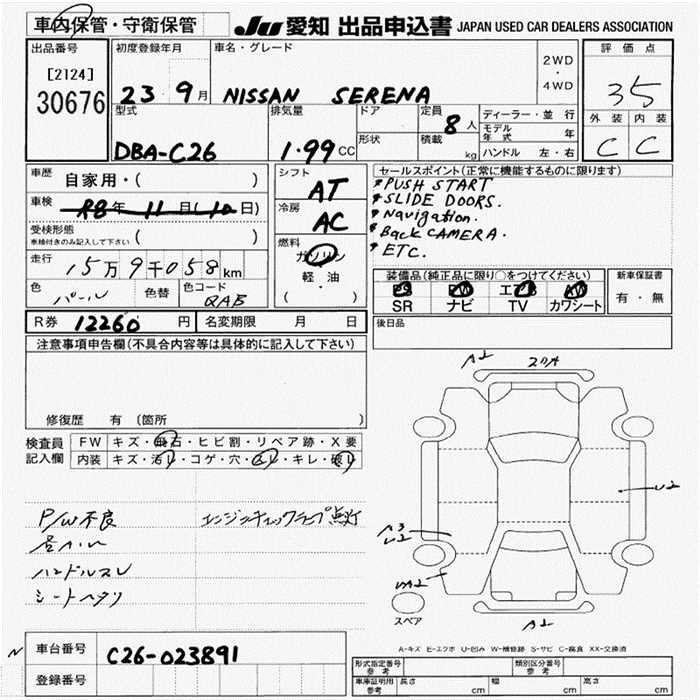 車内保管・守衛保管
JU 愛知 出品申込書 JAPAN USED CAR DEALERS ASSOCIATION
出品番号
[2124]
30676
初度登録年月
23 9月
車名・グレード
NISSAN SERENA
2WD
・
4WD
評価点
35
外装 内装
C C
型式
DBA-C26
排気量
1.99 CC
ドア
形状
定員
8人
積載
kg
ディーラー・並行
モデル年式 年
ハンドル 左・右
車歴
自家用・( )
車検
R8年 11月(10日)
受検形態
車検付きのみ記入して下さい ( )
走行
15万9千058km
色
パール
色替
色コード
QAB
シフト
AT
冷房
AC
燃料
ガソリン
軽・油
( ・ )
セールスポイント(正常に機能するものに限ります)
*PUSH START
*SLIDE DOORS.
*Navigation.
*Back CAMERA.
*ETC.
装備品(純正品に限り○をつけてください)
PS PW エアB AW
SR ナビ TV カワシート
新車保証書
有・無
後日品
R券 12260円
名変期限 月 日
注意事項申告欄(不具合内容等は具体的に記入して下さい)
修復歴 有 (箇所 )
検査員
記入欄
FW キズ・飛石・ヒビ割・リペア跡・X要
内装 キズ・汚れ・コゲ・穴・ハレ・キレ・破れ
P/W不良
エンジンチェックランプ点灯
ハンドルスレ
シートヘタリ
A2
スリA
U2
A3
U2
UA2
A2
スペア
A-キズ E-エクボ U-凹み W-補修跡 S-サビ C-腐食 XX-交換済
N
車台番号
C26-023891
登録番号
形式指定番号
参考
類別区分番号
参考
車庫証明用
参考
長さ cm
幅 cm
高さ cm